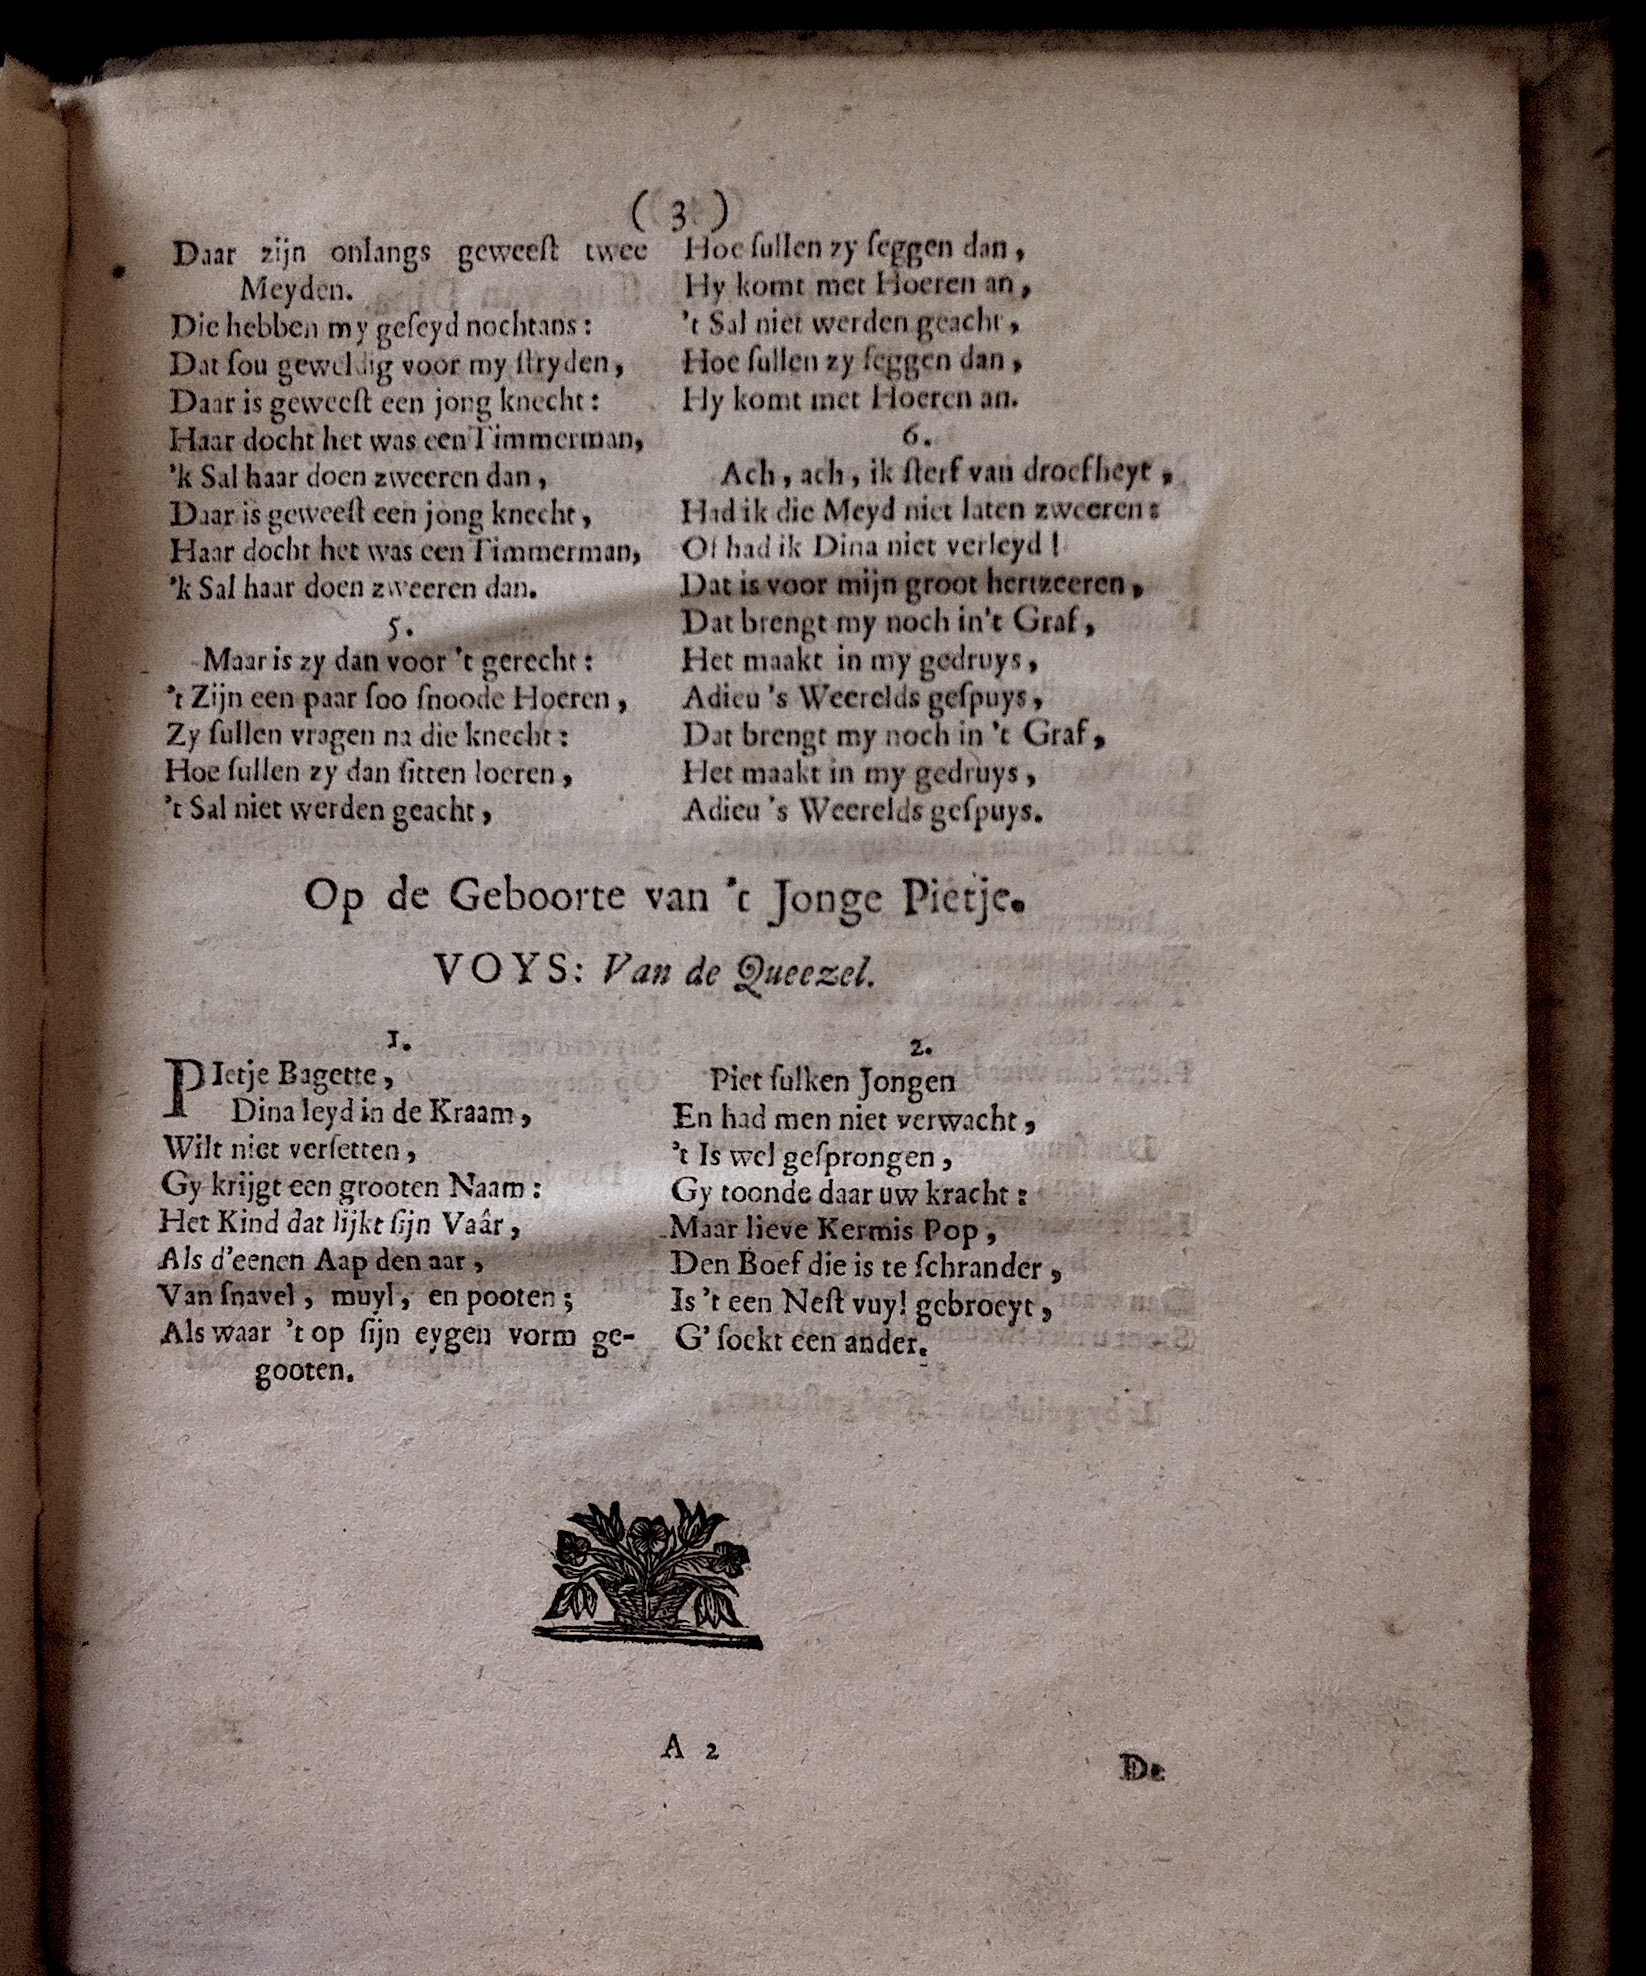 ( 3 )
Daar zijn onlangs geweeſt twee
Meyden.
Die hebben my geſeyd nochtans:
Dat ſou geweldig voor my ſtryden,
Daar is geweeſt een jong knecht:
Haar docht het was een Timmerman,
'k Sal haar doen zweeren dan,
Daar is geweeſt een jong knecht,
Haar docht het was een Timmerman,
'k Sal haar doen zweeren dan.
5.
Maar is zy dan voor 't gerecht:
't Zijn een paar ſoo ſnoode Hoeren,
Zy ſullen vragen na die knecht:
Hoe ſullen zy dan ſitten loeren,
't Sal niet werden geacht,
Hoe ſullen zy ſeggen dan,
Hy komt met Hoeren an,
't Sal niet werden geacht,
Hoe ſullen zy ſeggen dan,
Hy komt met Hoeren an.
6.
Ach, ach, ik ſterf van droefheyt,
Had ik die Meyd niet laten zweeren:
Of had ik Dina niet verleyd!
Dat is voor mijn groot hertzeeren,
Dat brengt my noch in't Graf,
Het maakt in my gedruys,
Adieu 's Weerelds geſpuys,
Dat brengt my noch in 't Graf,
Het maakt in my gedruys,
Adieu 's Weerelds geſpuys.
Op de Geboorte van 't Jonge Pietje.
VOYS: Van de Queezel.
1.
PIetje Bagette,
Dina leyd in de Kraam,
Wilt niet verſetten,
Gy krijgt een grooten Naam:
Het Kind dat lijkt ſijn Vaâr,
Als d'eenen Aap den aar,
Van ſnavel, muyl, en pooten;
Als waar 't op ſijn eygen vorm ge-
gooten.
2.
Piet ſulken Jongen
En had men niet verwacht,
't Is wel geſprongen,
Gy toonde daar uw kracht:
Maar lieve Kermis Pop,
Den Boef die is te ſchrander,
Is 't een Neſt vuyl gebroeyt,
G' ſoekt een ander.
A 2
De